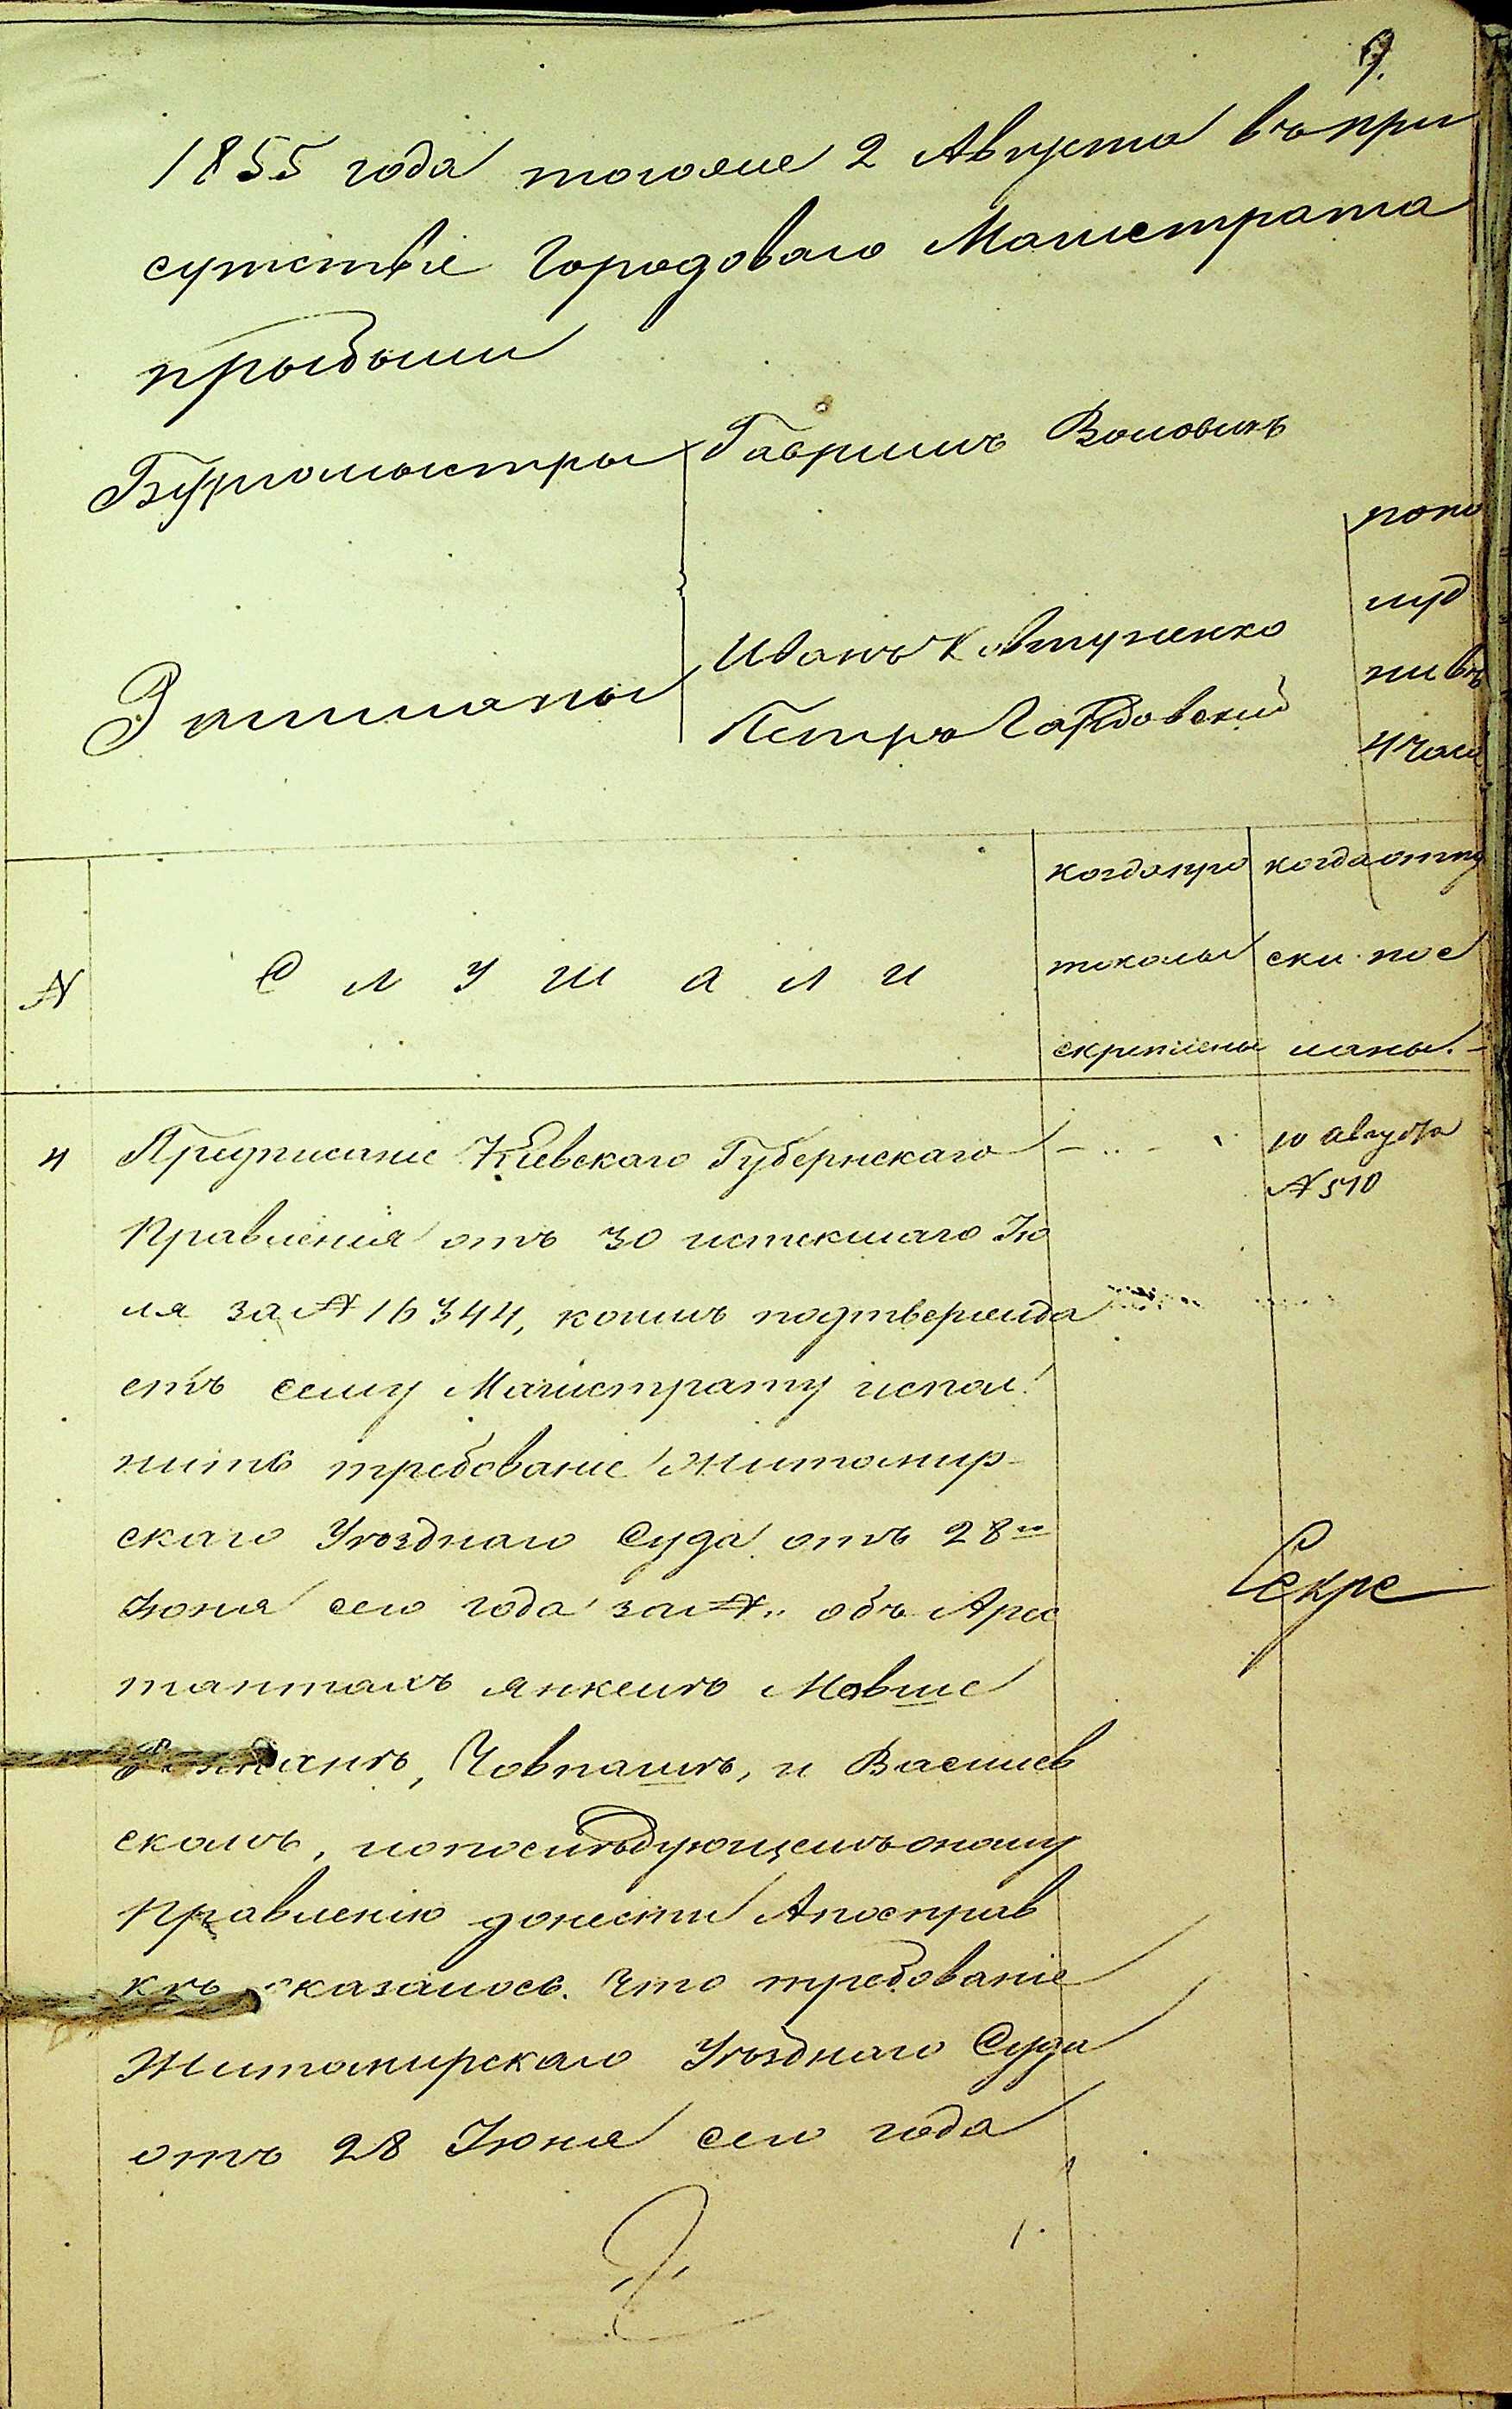 9.
1855 года тогоже 2 Августа въ при
сутствіе Городоваго Магистрата
прыбыли
Бургомыстры Гаврилъ Воловикъ
Иванъ Ковтуненко
Ратманы Петръ
попо
луд
ни въ
4 часа
N
СЛУШАЛИ
когда про
токолы
скреплены
когда отпу
ски пос
ланы. -
4 Предписаніе Кіевскаго Губернскаго
Правленія отъ 30 истекшаго Ію
ля за N 16344, коимъ подтвержда
етъ сему Магистрату испол
нить требованіе Житомир-
скаго Уѣзднаго Суда отъ 28го
Іюня сего года за N „ объ Арес
тантахъ Янкелѣ Мовше
Човпашѣ, и Васілев
скомъ, ипопослѣдующемъ оному
Правленію донести Апосправ
кѣ оказалось. Что требованіе
Житомирскаго Уѣзднаго Суда
отъ 28 Іюня сего года
10 августа
N 510
Секре